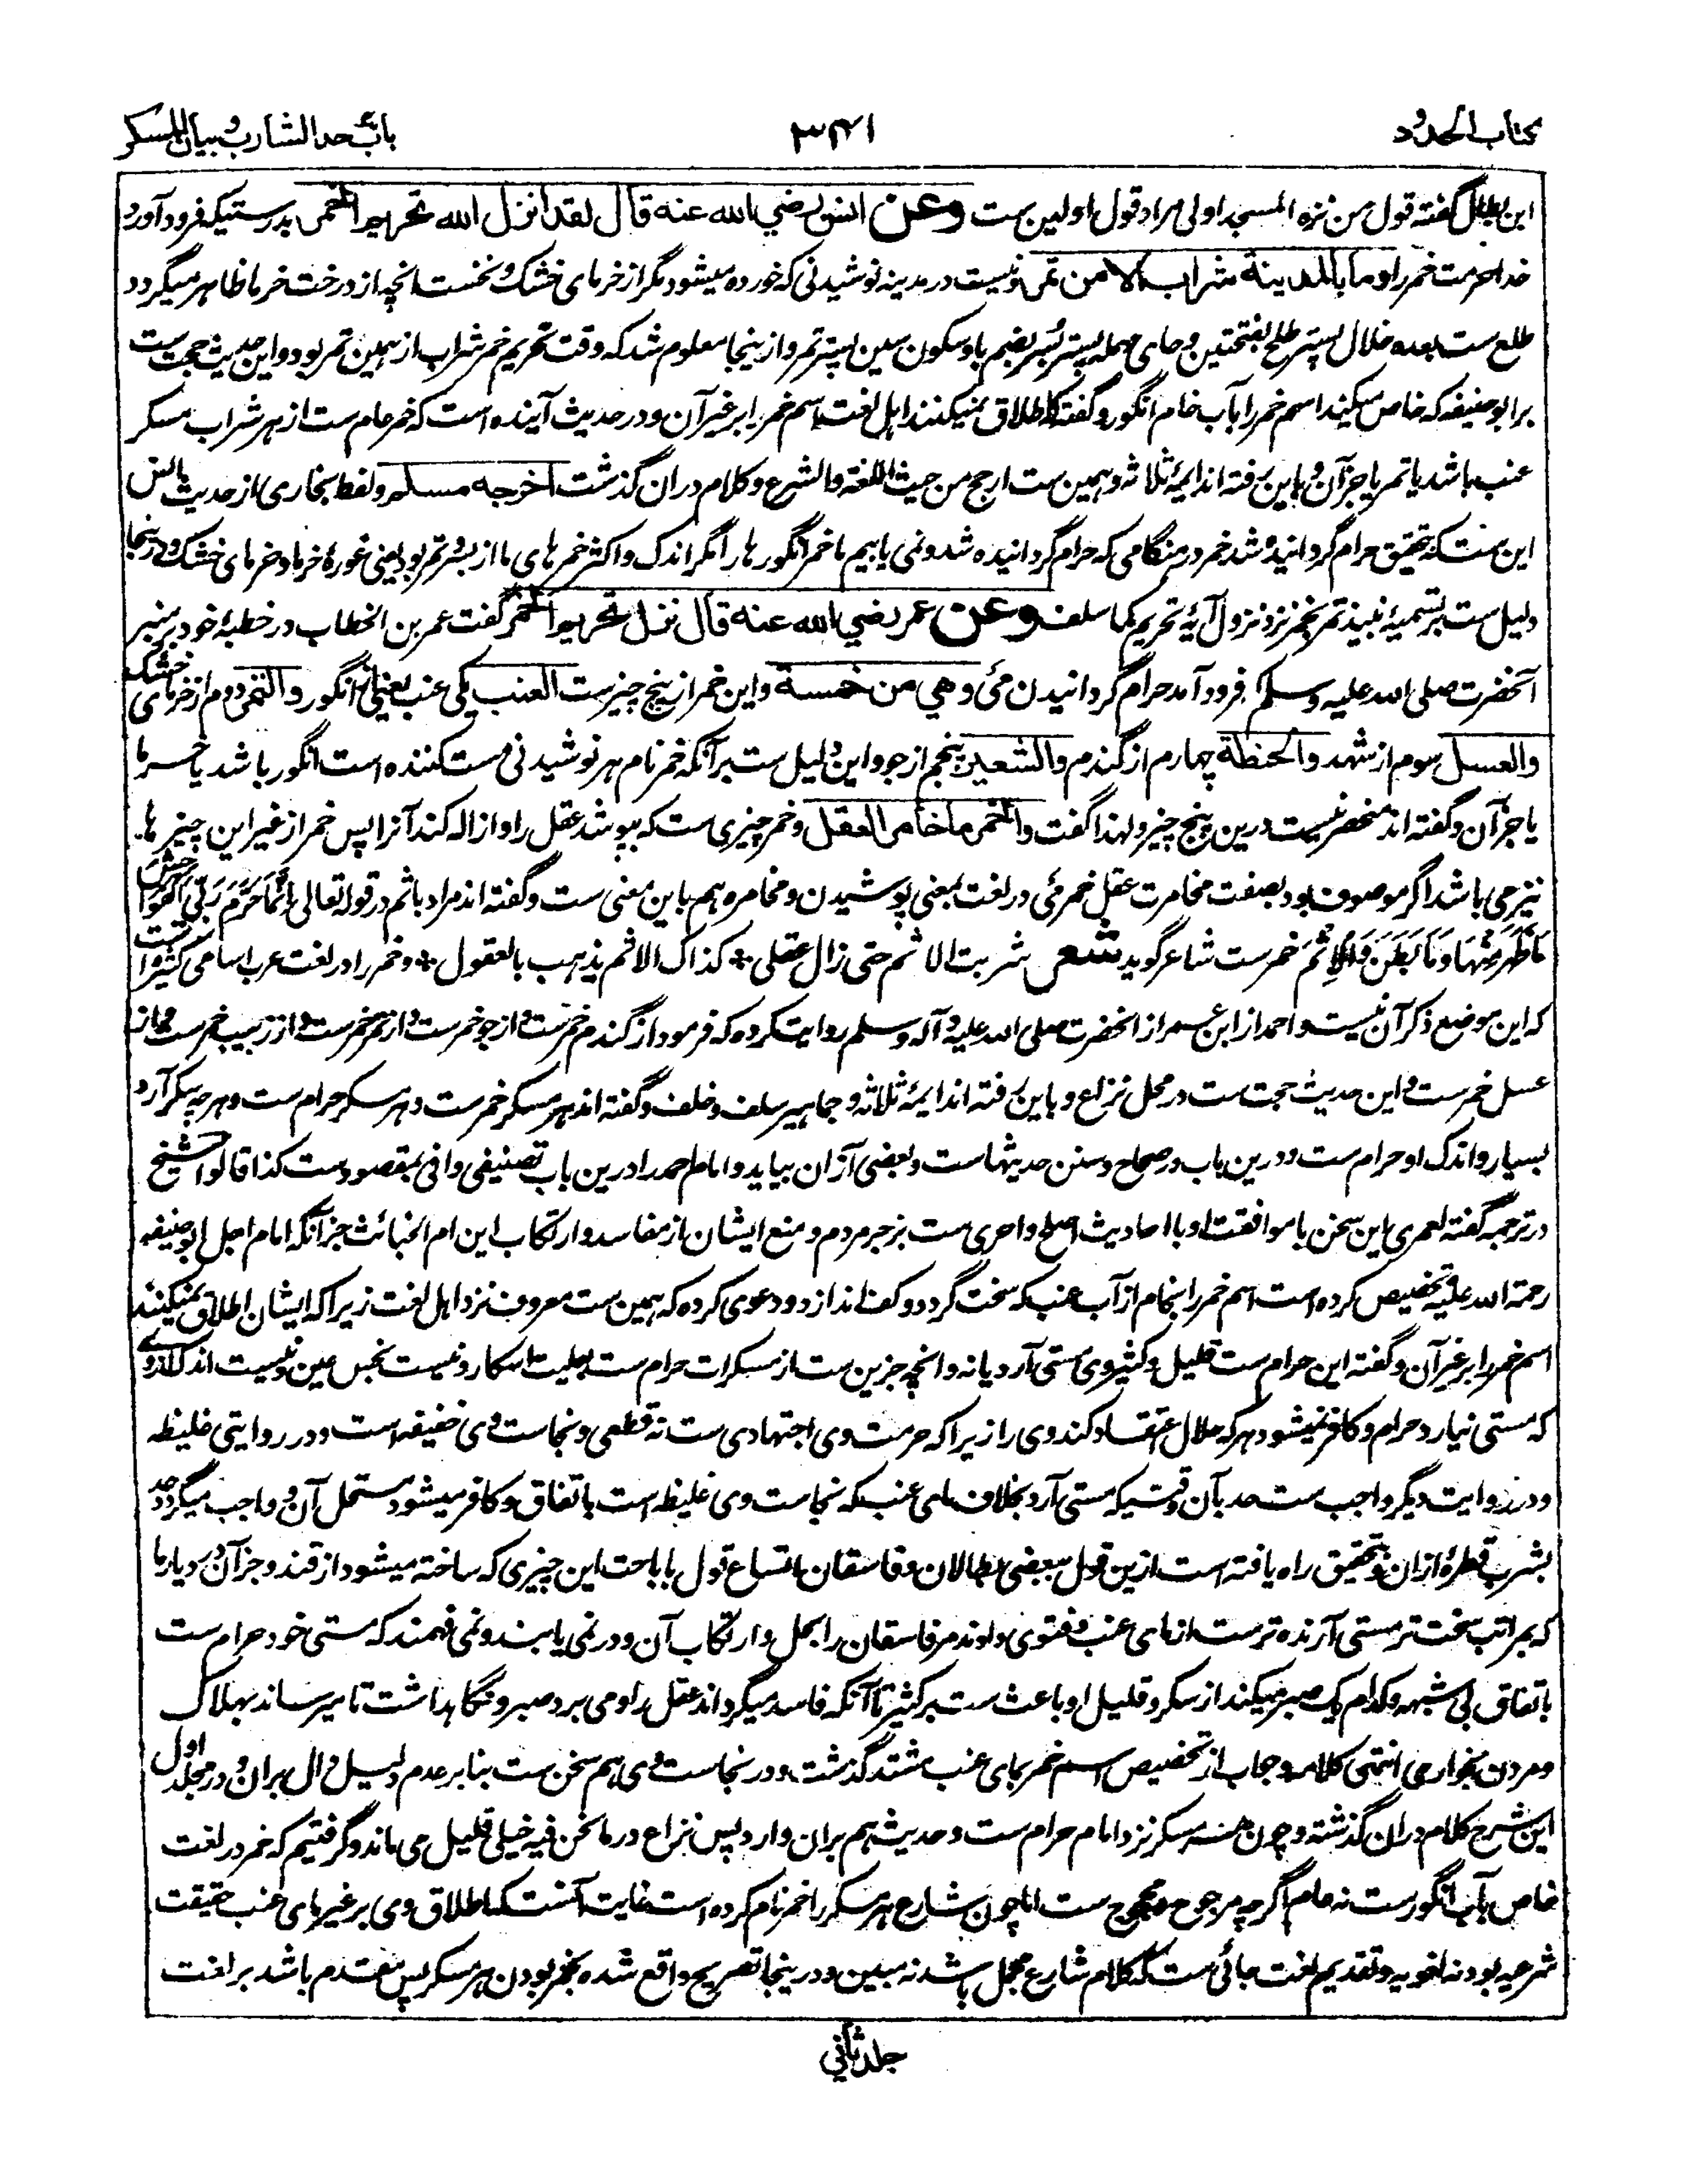 کتاب الحدود
۳۴۱
باب حد الشارب وبیان المسکر
ابن بطال گفته قول من نزه المسجد اولی مراد قول اولین ست وعن انس رضي الله عنه قال لقد انزل الله تحریم الخمر بدرستیکه فرود آورد
خدا حرمت خمر را وما بالمدینة شراب الا من تمر ونیست در مدینه نوشیدنی که خورده میشود مگر از خرمای خشک و نخست انچه از درخت خرما ظاهر میگردد
طلع ست بعده خلال پستر بلح بفتحتین وحای مهمله پستر بسر بضم با وسکون سین پستر تمر وازینجا معلوم شد که وقت تحریم خمر شراب از همین تمر بود واین حدیث حجت ست
بر ابو حنیفه که خاص میکند اسم خمر را بآب خام انگور وگفته که اطلاق نمیکنند اهل لغت اسم خمر را بر غیر آن ودر حدیث آینده است که خمر عام ست از هر شراب مسکر
عنب باشد یا تمر یا جز آن و باین رفته اند ایمهٔ ثلاثه وهمین ست ارجح من حیث اللغة والشرع وکلام دران گذشت اخرجه مسلم ولفظ بخاری از حدیث انس
این ست که بتحقیق حرام گردانیده شد خمر در هنگامی که حرام گردانیده شد ونمی یابیم ما خمر انگورها را مگر اندک واکثر خمرهای ما از بسر وتمر بود یعنی غورهٔ خرما وخرمای خشک ودرینجا
دلیل ست بر تسمیهٔ نبیذ تمر بخمر نزد نزول آیهٔ تحریم کما سلف وعن عمر رضي الله عنه قال نزل تحریم الخمر گفت عمر بن الخطاب در خطبهٔ خود بر منبر
آنحضرت صلی الله علیه وسلم فرود آمد حرام گردانیدن می وهي من خمسة واین خمر از پنج چیز ست العنب یکی عنب یعنی انگور والتمر دوم از خرمای خشک
والعسل سوم از شهد والحنطة چهارم از گندم والشعیر پنجم از جو واین دلیل ست بر آنکه خمر نام هر نوشیدنی مست کننده است انگور باشد یا خرما
یا جز آن وگفته اند منحصر نیست درین پنج چیز ولهذا گفت والخمر ما خامر العقل وخمر چیزی ست که بپوشد عقل را وازاله کند آنرا پس خمر از غیر این چیزها
نیز می باشد اگر موصوف بود بصفت مخامرت عقل خمر می در لغت بمعنی پوشیدن ومخامره هم باین معنی ست وگفته اند مراد باثم در قوله تعالی اِنَّمَا حَرَّمَ رَبِّیَ الْفَوَاحِشَ
مَا ظَهَرَ مِنْهَا وَمَا بَطَنَ وَالْاِثْمَ خمر ست شاعر گوید شعر شربت الاثم حتی زال عقلی * کذاک الاثم یذهب بالعقول * وخمر را در لغت عرب اسامی کثیره است
که این موضع ذکر آن نیست واحمد از ابن عمر از آنحضرت صلی الله علیه وآله وسلم روایت کرده که فرمود از گندم خمر ست و از جو خمر ست و از تمر خمر ست و از زبیب خمر ست و از
عسل خمر ست و این حدیث حجت ست در محل نزاع وباین رفته اند ایمهٔ ثلاثه وجماهیر سلف وخلف وگفته اند هر مسکر خمر ست وهر مسکر حرام ست وهر چه سکر آرد
بسیار واندک او حرام ست ودرین باب در صحاح وسنن حدیثها ست وبعضی از ان بیاید وامام احمد را درین باب تصنیفی وافی بمقصود ست کذا قالوا شیخ
در ترجمه گفته لعمری این سخن با موافقت او با احادیث اصلح واحری ست بزجر مردم ومنع ایشان از مفاسد وارتکاب این ام الخبائث جز آنکه امام اجل ابو حنیفه
رحمة الله علیه تخصیص کرده است اسم خمر را بخام از آب عنب که سخت گردد وکف اندازد ودعوی کرده که همین ست معروف نزد اهل لغت زیرا که ایشان اطلاق نمیکنند
اسم خمر را بر غیر آن وگفته این حرام ست قلیل وکثیر وی مستی آرد یا نه وانچه جزین ست از مسکرات حرام ست بعلیت اسکار ونیست نجس عین ونیست اندک از وی
که مستی نیارد حرام وکافر نمیشود هر که حلال اعتقاد کند وی را زیرا که حرمت وی اجتهادی ست نه قطعی ونجاست وی خفیفه است ودر روایتی غلیظه
ودر روایت دیگر واجب ست حد بآن وقتیکه مستی آرد بخلاف مای عنب که نجاست وی غلیظه است باتفاق وکافر میشود مستحل آن و واجب میگردد حد
بشرب قطرهٔ ازان و بتحقیق راه یافته است ازین قول ببعضی بطالان وفاسقان اتساع قول باباحت این چیزی که ساخته میشود از قند وجز آن در دیار ما
که بمراتب سخت تر مستی آرنده تر ست از مای عنب وفتوی دادند مر فاسقان را بحل وارتکاب آن ودر نمی یابند ونمی فهمند که مستی خود حرام ست
باتفاق بی شبهه وکدام یک صبر میکند از سکر وقلیل او باعث ست بر کثیر تا آنکه فاسد میگرداند عقل را ومی برد صبر ونگاهداشت تا میرساند بهلاک
ومردن بخواری انتهی کلامه وجواب از تخصیص اسم خمر بمای عنب مشتد گذشت ودر نجاست وی هم سخن ست بنابر عدم دلیل دال بران ودر مجلد اول
این شرح کلام دران گذشته وچون هر مسکر نزد امام حرام ست وحدیث هم بران وارد پس نزاع در ما نحن فیه خیلی قلیل می ماند وگرفتیم که خمر در لغت
خاص بآب انگور ست نه عام اگرچه مرجوح ومحجوج ست اما چون شارع هر مسکر را خمر نام کرده است غایت آنست که اطلاق وی بر غیر مای عنب حقیقت
شرعیه بود نه لغویه وتقدیم لغت جائی ست که کلام شارع مجمل باشد نه مبین ودرینجا تصریح واقع شده بخمر بودن هر مسکر پس مقدم باشد بر لغت
جلد ثانی